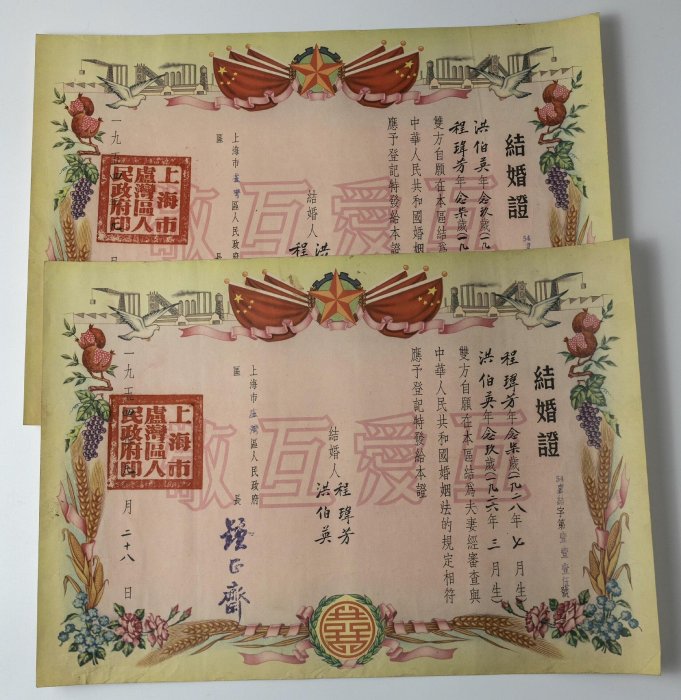 結婚證
洪伯英年念玖歲(一九
程瑋芳年念柒歲(一九
雙方自願在本區結為
中華人民共和國婚姻
應予登記特發給本證
結婚人 洪
程
上海市盧灣區人民政府
區 長
一九五
上海市
盧灣區人
民政府印
互愛互敬
結婚證
54盧結字第壹壹壹伍號
程瑋芳年念柒歲(一九二八年七月生)
洪伯英年念玖歲(一九二六年三月生)
雙方自願在本區結為夫妻經審查與
中華人民共和國婚姻法的規定相符
應予登記特發給本證
結婚人 程瑋芳
洪伯英
上海市盧灣區人民政府
區 長
一九五 月二十八日
上海市
盧灣區人
民政府印
互愛互敬
囍